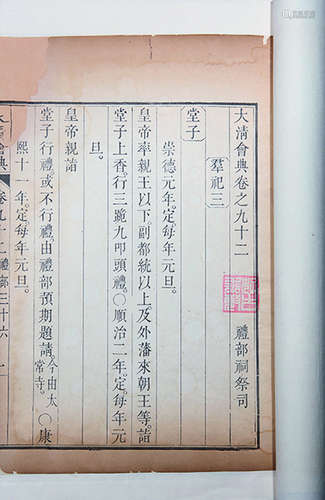 大清會典卷之九十二
禮部祠祭司
羣祀三
堂子
崇德元年。定每年元旦。
皇帝率親王以下。副都統以上。及外藩來朝王等。詣
堂子上香。行三跪九叩頭禮。○順治二年。定每年元
旦。
皇帝親詣
堂子行禮。或不行禮。由禮部預期題請。今由太常寺。○康
熙十一年。定每年元旦。